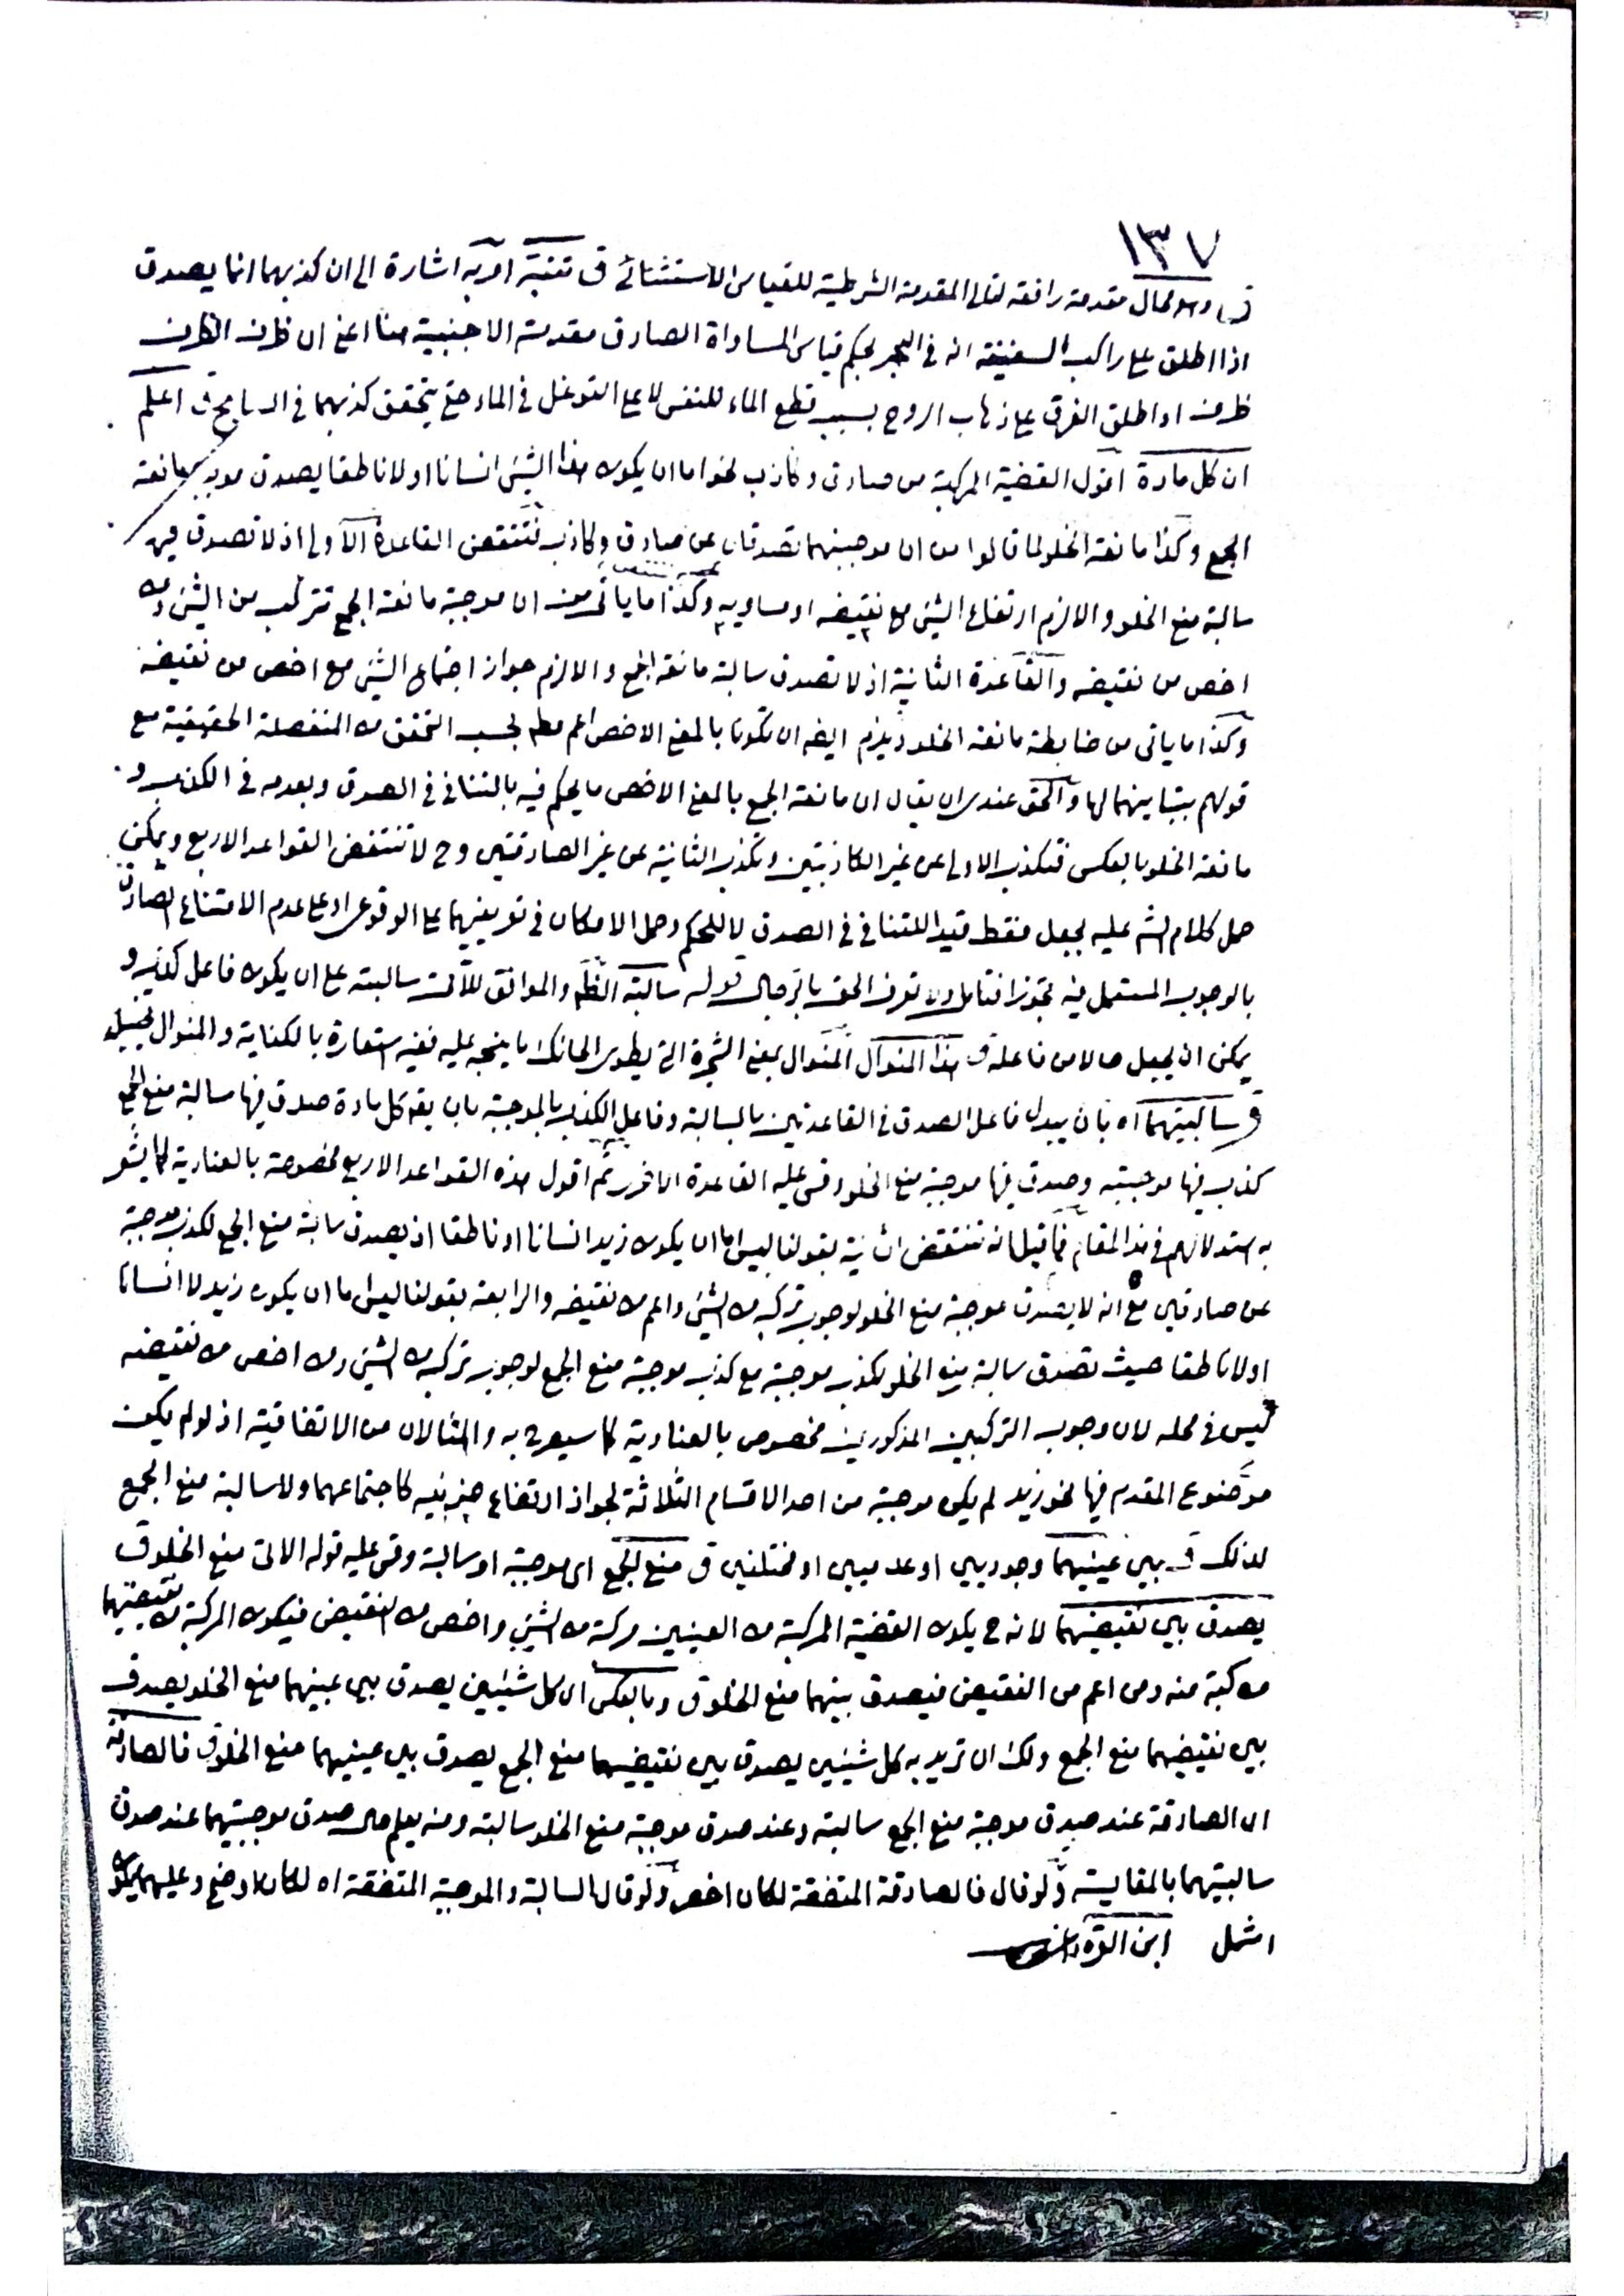 ١٣٧
ق وهو محال مقدمة رافعة لتالي المقدمة الشرطية للقياس الاستثنائي ق تنبيه اه به اشارة الى ان كذبهما انما يصدق
اذا اطلق على راكب السفينة انه في البحر بحكم قياس المساواة الصادق مقدمته الاجنبية هنا اعني ان ظرف الظرف
ظرف او اطلق الغرق على ذهاب الروح بسبب قطع الماء للنفس لا على التوغل في الماء حتى يتحقق كذبهما في السابح ق اعلم
ان كل مادة اقول القضية المركبة من صادق وكاذب نحو اما ان يكون هذا الشيئ انسانا او لا ناطقا يصدق موجبة مانعة
الجمع وكذا مانعة الخلو لما قالوا من ان موجبتهما تصدقان عن صادق وكاذب فتنتقض القاعدة الاولى اذ لا تصدق فيه
سالبة منع الخلو والا لزم ارتفاع الشيئ مع نقيضه او مساويه وكذا ما يأتى من ان موجبة مانعة الجمع تتركب من الشيئ ومن
اخص من نقيضه والقاعدة الثانية اذ لا تصدق سالبة مانعة الجمع والا لزم جواز اجتماع الشيئ مع اخص من نقيضه
وكذا ما يأتى من ضابطة مانعة الخلو ويلزم ايضا ان تكونا بالمعنى الاخص اعم مطم بحسب التحقق من المنفصلة الحقيقية مع
قولهم بتباينهما لها والحق عندى ان يقال ان مانعة الجمع بالمعنى الاخص ما يحكم فيه بالتنافى في الصدق وبعدمه في الكذب و
مانعة الخلو بالعكس فتكذب الاولى عن غير الكاذبتين وتكذب الثانية عن غير الصادقتين وح لا تنتقض القواعد الاربع ويمكن
حمل كلام الشم عليه بجعل فقط قيدا للتنافى في الصدق لا للحكم وحمل الامكان في تعريفيهما على الوقوعى او على عدم الامتناع الصادق
بالوجوب المستعمل فيه تجوزا فتأمل ولا تعرف الحق بالرجال قوله سالبة الظم والموافق للآتى سالبته على ان يكون فاعل كذب و
يمكن ان يجعل حالا من فاعله ق هذا المنوال المنوال بمعنى الشجرة التى يطوى الحائك ما ينسجه عليه ففيه استعارة بالكناية والمنوال تخييل
ق سالبتيهما اه بان يبدل فاعل الصدق في القاعدتين بالسالبة وفاعل الكذب بالموجبة بان يقم كل مادة صدق فيها سالبة منع الجمع
كذب فيها موجبته وصدق فيها موجبة منع الخلو وقس عليه القاعدة الاخرى ثم اقول هذه القواعد الاربع مخصوصة بالعنادية كما يشعر
به استدلالهم في هذا المقام فما قيل انه تنتقض الثانية بقولنا ليس اما ان يكون زيد انسانا او ناطقا اذ يصدق سالبة منع الجمع لكذب موجبة
عن صادقين مع انه لا يصدق موجبة منع الخلو لوجوب تركبه من الشيئ واعم من نقيضه والرابعة بقولنا ليس اما ان يكون زيد لا انسانا
او لا ناطقا حيث تصدق سالبة منع الخلو لكذب موجبة مع كذب موجبة منع الجمع لوجوب تركبه من الشيئ ومن اخص من نقيضه
ليس في محله لان وجوب التركبين المذكورين مخصوص بالعنادية كما سيصرح به والمثالان من الاتفاقية اذ لو لم يكن
موضوع المقدم فيها نحو زيد لم يكن موجبة من احد الاقسام الثلاثة لجواز ارتفاع جزئيه كاجتماعهما ولا سالبة منع الجمع
لذلك ق بين عينيهما وجوديين او عدميين او مختلفين ق منع الجمع اى موجبة او سالبة وقس عليه قوله الاتى منع الخلو ق
يصدق بين نقيضيهما لانه ح يكون القضية المركبة من العينين مركبة من الشيئ واخص من النقيض فيكون المركبة من نقيضيهما
مركبة منه ومن اعم من النقيض فيصدق بينهما منع الخلو ق وبالعكس اى كل شيئين يصدق بين عينيهما منع الخلو يصدق
بين نقيضيهما منع الجمع ولك ان تريد به كل شيئين يصدق بين نقيضيهما منع الجمع يصدق بين عينيهما منع الخلو ق فالصادقة
اى الصادقة عند صدق موجبة منع الجمع سالبته وعند صدق موجبة منع الخلو سالبته ومنه يعلم حال صدق موجبتيهما عند صدق
سالبتيهما بالمقايسة ولو قال فالصادقة المتفقة لكان اخصر ولو قال السالبة والموجبة المتفقة اه لكان اوضح وعليهما يكون
اشمل ابن القره داغى